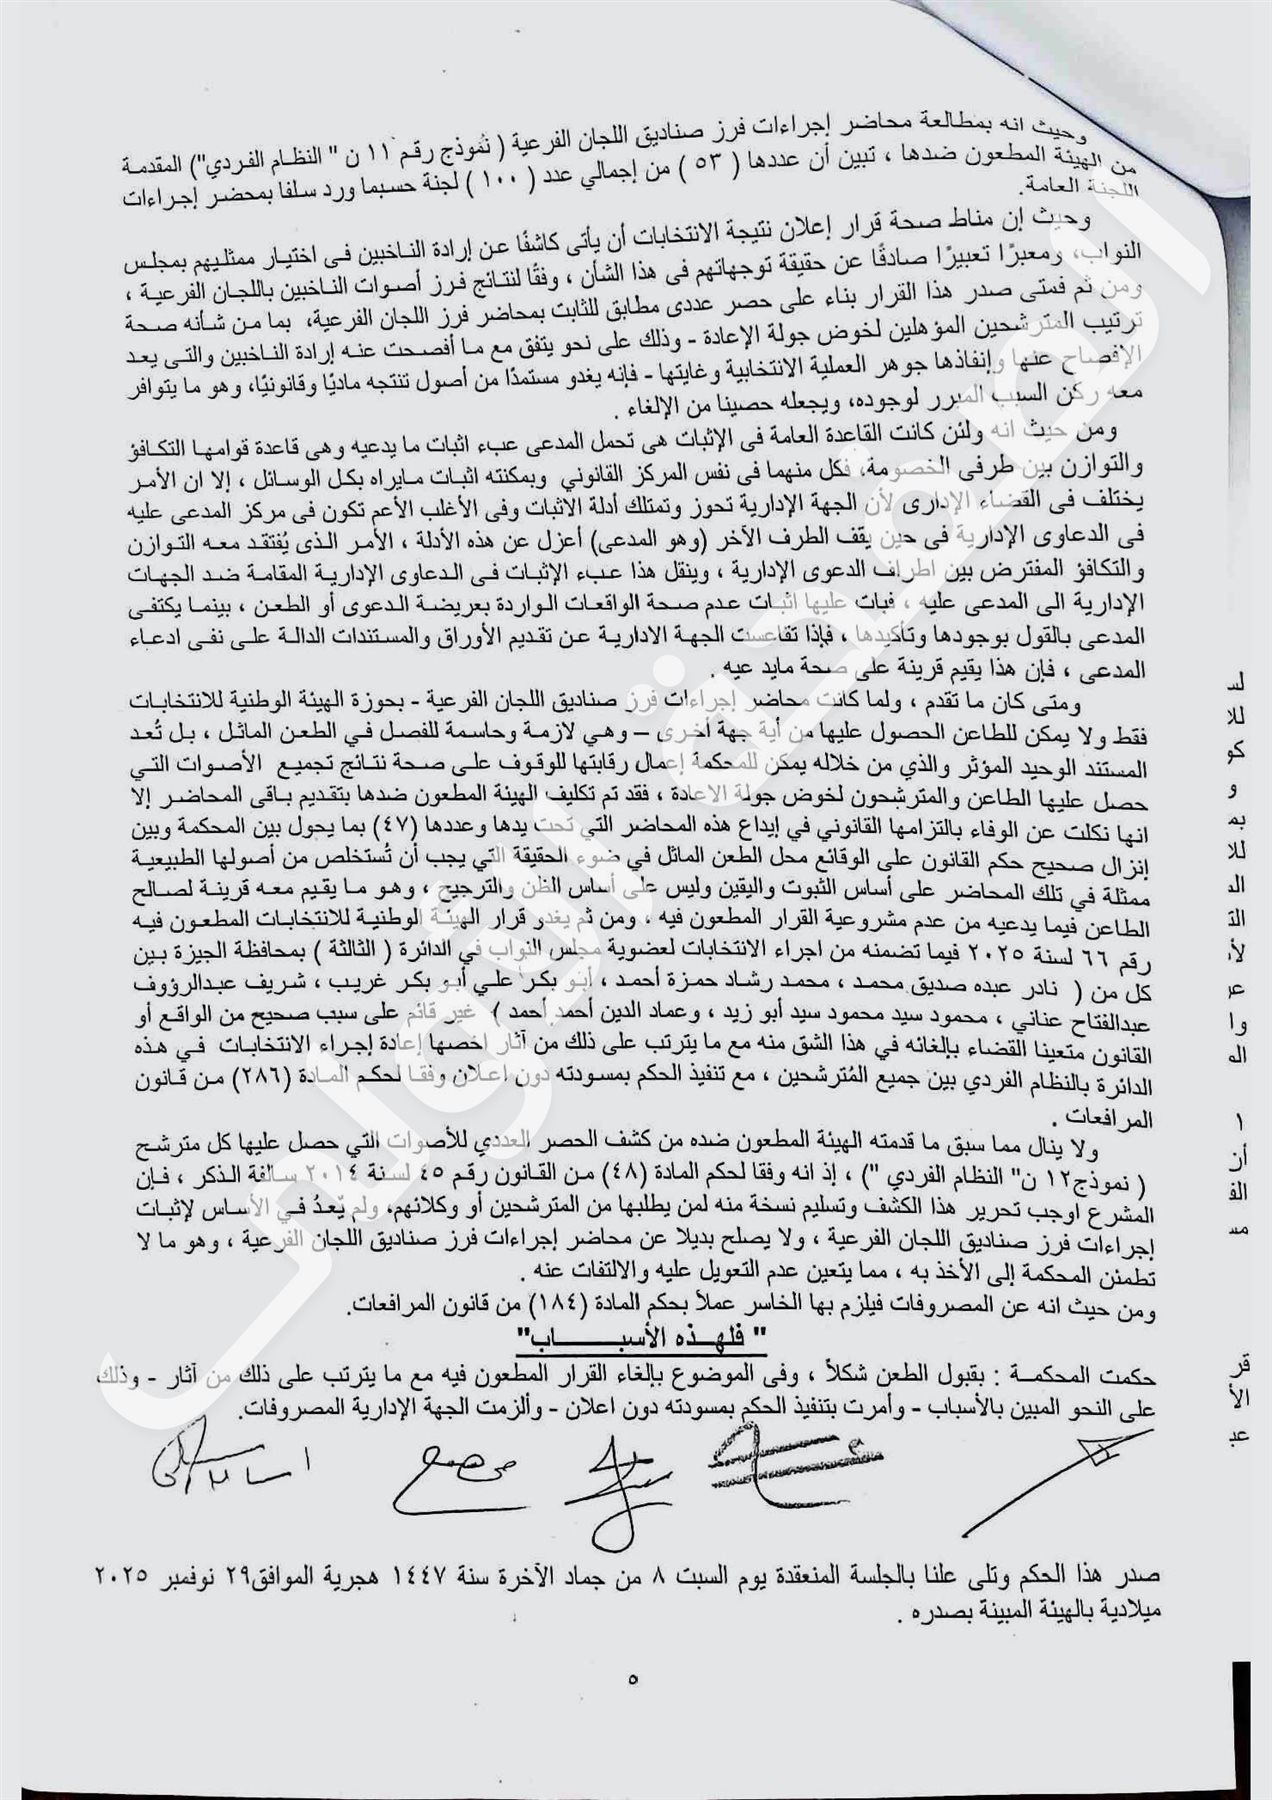 وحيث انه بمطالعة محاضر إجراءات فرز صناديق اللجان الفرعية ( نموذج رقم ١١ ن " النظام الفردي") المقدمة
من الهيئة المطعون ضدها ، تبين أن عددها ( ٥٣ ) من إجمالي عدد ( ١٠٠ ) لجنة حسبما ورد سلفا بمحضر إجراءات
اللجنة العامة.
وحيث إن مناط صحة قرار إعلان نتيجة الانتخابات أن يأتى كاشفًا عن إرادة الناخبين فى اختيار ممثليهم بمجلس
النواب، ومعبرًا تعبيرًا صادقًا عن حقيقة توجهاتهم فى هذا الشأن ، وفقًا لنتائج فرز أصوات الناخبين باللجان الفرعية ،
ومن ثم فمتى صدر هذا القرار بناء على حصر عددى مطابق للثابت بمحاضر فرز اللجان الفرعية، بما من شأنه صحة
ترتيب المترشحين المؤهلين لخوض جولة الإعادة - وذلك على نحو يتفق مع ما أفصحت عنه إرادة الناخبين والتى يعد
الإفصاح عنها وإنفاذها جوهر العملية الانتخابية وغايتها - فإنه يغدو مستمدًا من أصول تنتجه ماديًا وقانونيًا، وهو ما يتوافر
معه ركن السبب المبرر لوجوده، ويجعله حصينا من الإلغاء .
ومن حيث انه ولئن كانت القاعدة العامة فى الإثبات هى تحمل المدعى عبء اثبات ما يدعيه وهى قاعدة قوامها التكافؤ
والتوازن بين طرفى الخصومة، فكل منهما فى نفس المركز القانوني وبمكنته اثبات مايراه بكل الوسائل ، إلا ان الأمر
يختلف فى القضاء الإدارى لأن الجهة الإدارية تحوز وتمتلك أدلة الاثبات وفى الأغلب الأعم تكون فى مركز المدعى عليه
فى الدعاوى الإدارية فى حين يقف الطرف الآخر (وهو المدعى) أعزل عن هذه الأدلة ، الأمر الذى يُفتقد معه التوازن
والتكافؤ المفترض بين اطراف الدعوى الإدارية ، وينقل هذا عبء الإثبات فى الدعاوى الإدارية المقامة ضد الجهات
الإدارية الى المدعى عليه ، فبات عليها اثبات عدم صحة الواقعات الواردة بعريضة الدعوى أو الطعن ، بينما يكتفى
المدعى بالقول بوجودها وتأكيدها ، فإذا تقاعست الجهة الادارية عن تقديم الأوراق والمستندات الدالة على نفى ادعاء
المدعى ، فإن هذا يقيم قرينة على صحة مايد عيه .
ومتى كان ما تقدم ، ولما كانت محاضر إجراءات فرز صناديق اللجان الفرعية - بحوزة الهيئة الوطنية للانتخابات
فقط ولا يمكن للطاعن الحصول عليها من أية جهة أخرى – وهي لازمة وحاسمة للفصل في الطعن الماثل ، بل تُعد
المستند الوحيد المؤثر والذي من خلاله يمكن للمحكمة إعمال رقابتها للوقوف على صحة نتائج تجميع الأصوات التي
حصل عليها الطاعن والمترشحون لخوض جولة الاعادة ، فقد تم تكليف الهيئة المطعون ضدها بتقديم باقى المحاضر إلا
انها نكلت عن الوفاء بالتزامها القانوني في إيداع هذه المحاضر التي تحت يدها وعددها (٤٧) بما يحول بين المحكمة وبين
إنزال صحيح حكم القانون على الوقائع محل الطعن الماثل في ضوء الحقيقة التي يجب أن تُستخلص من أصولها الطبيعية
ممثلة في تلك المحاضر على أساس الثبوت واليقين وليس على أساس الظن والترجيح ، وهو ما يقيم معه قرينة لصالح
الطاعن فيما يدعيه من عدم مشروعية القرار المطعون فيه ، ومن ثم يغدو قرار الهيئة الوطنية للانتخابات المطعون فيه
رقم ٦٦ لسنة ٢٠٢٥ فيما تضمنه من اجراء الانتخابات لعضوية مجلس النواب في الدائرة ( الثالثة ) بمحافظة الجيزة بين
كل من ( نادر عبده صديق محمد ، محمد رشاد حمزة أحمد ، أبو بكر علي أبو بكر غريب ، شريف عبدالرؤوف
عبدالفتاح عناني ، محمود سيد محمود سيد أبو زيد ، وعماد الدين أحمد أحمد ) غير قائم على سبب صحيح من الواقع أو
القانون متعينا القضاء بإلغائه في هذا الشق منه مع ما يترتب على ذلك من آثار اخصها إعادة إجراء الانتخابات في هذه
الدائرة بالنظام الفردي بين جميع المُترشحين ، مع تنفيذ الحكم بمسودته دون اعلان وفقا لحكم المادة (٢٨٦) من قانون
المرافعات .
ولا ينال مما سبق ما قدمته الهيئة المطعون ضده من كشف الحصر العددي للأصوات التي حصل عليها كل مترشح
( نموذج١٢ ن" النظام الفردي ") ، إذ انه وفقا لحكم المادة (٤٨) من القانون رقم ٤٥ لسنة ٢٠١٤ سالفة الذكر ، فإن
المشرع اوجب تحرير هذا الكشف وتسليم نسخة منه لمن يطلبها من المترشحين أو وكلائهم، ولم يّعدُ في الأساس لإثبات
إجراءات فرز صناديق اللجان الفرعية ، ولا يصلح بديلا عن محاضر إجراءات فرز صناديق اللجان الفرعية ، وهو ما لا
تطمئن المحكمة إلى الأخذ به ، مما يتعين عدم التعويل عليه والالتفات عنه .
ومن حيث انه عن المصروفات فيلزم بها الخاسر عملاً بحكم المادة (١٨٤) من قانون المرافعات.
" فلهذه الأسبــــــاب"
حكمت المحكمة : بقبول الطعن شكلاً ، وفى الموضوع بإلغاء القرار المطعون فيه مع ما يترتب على ذلك من آثار - وذلك
على النحو المبين بالأسباب - وأمرت بتنفيذ الحكم بمسودته دون اعلان - وألزمت الجهة الإدارية المصروفات.
صدر هذا الحكم وتلى علنا بالجلسة المنعقدة يوم السبت ٨ من جماد الآخرة سنة ١٤٤٧ هجرية الموافق٢٩ نوفمبر ٢٠٢٥
ميلادية بالهيئة المبينة بصدره .
٥